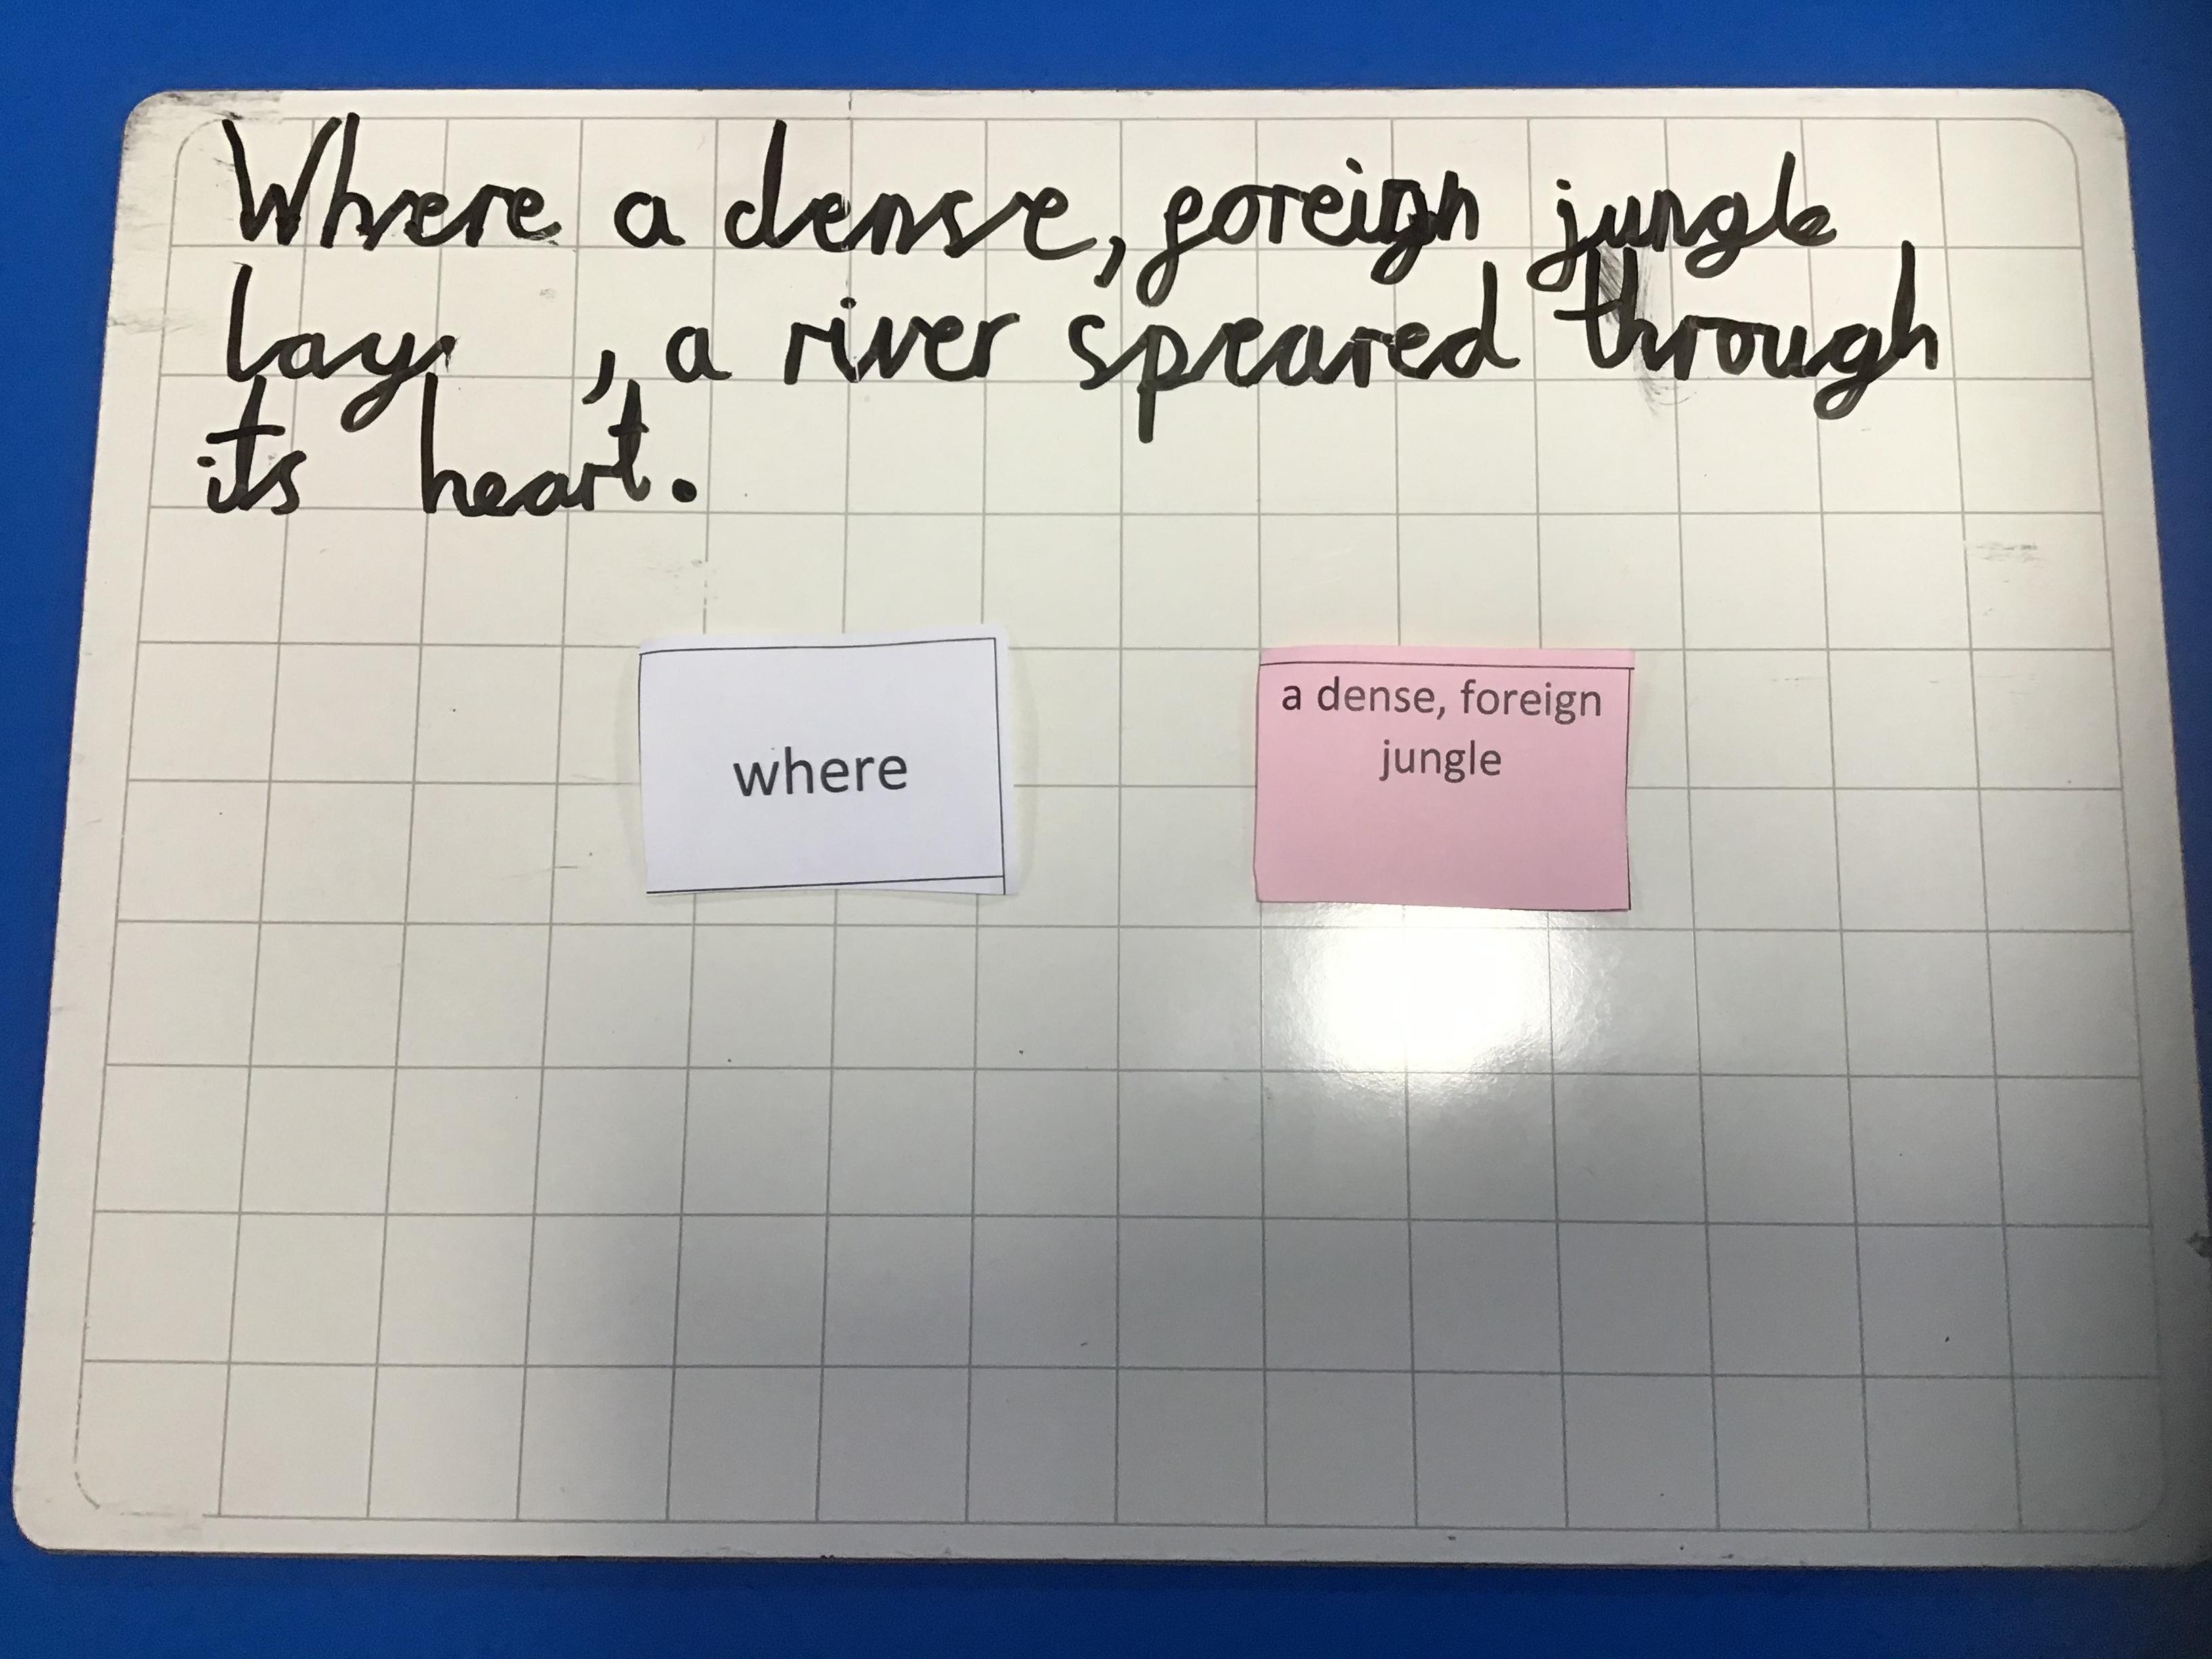 Where a dense, foreign jungle
lay, a river speared through
its heart.
where
a dense, foreign
jungle